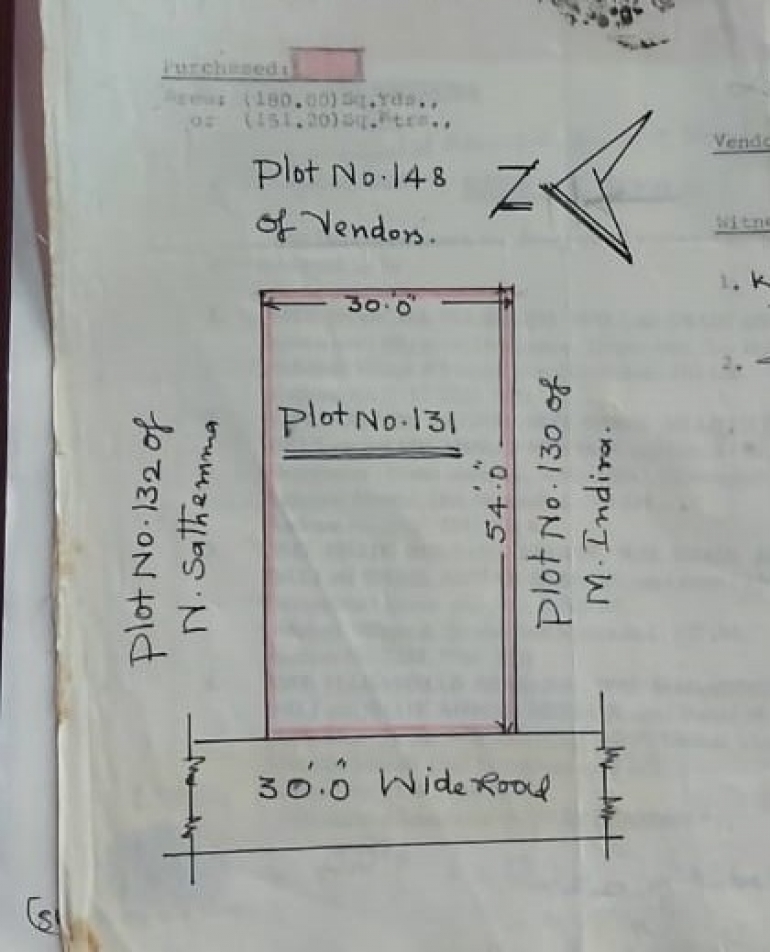 Purchased:
Area: (180.00)Sq.Yds.,
or (151.20)Sq.Mtrs.,
Plot No.148
of Vendors.
N
30'.0"
Plot No.131
54'.0"
Plot No.132 of
N. Sathemma
Plot No.130 of
M. Indira.
30'.0" Wide Road
Vendo
Witne
1. K
2.
(S